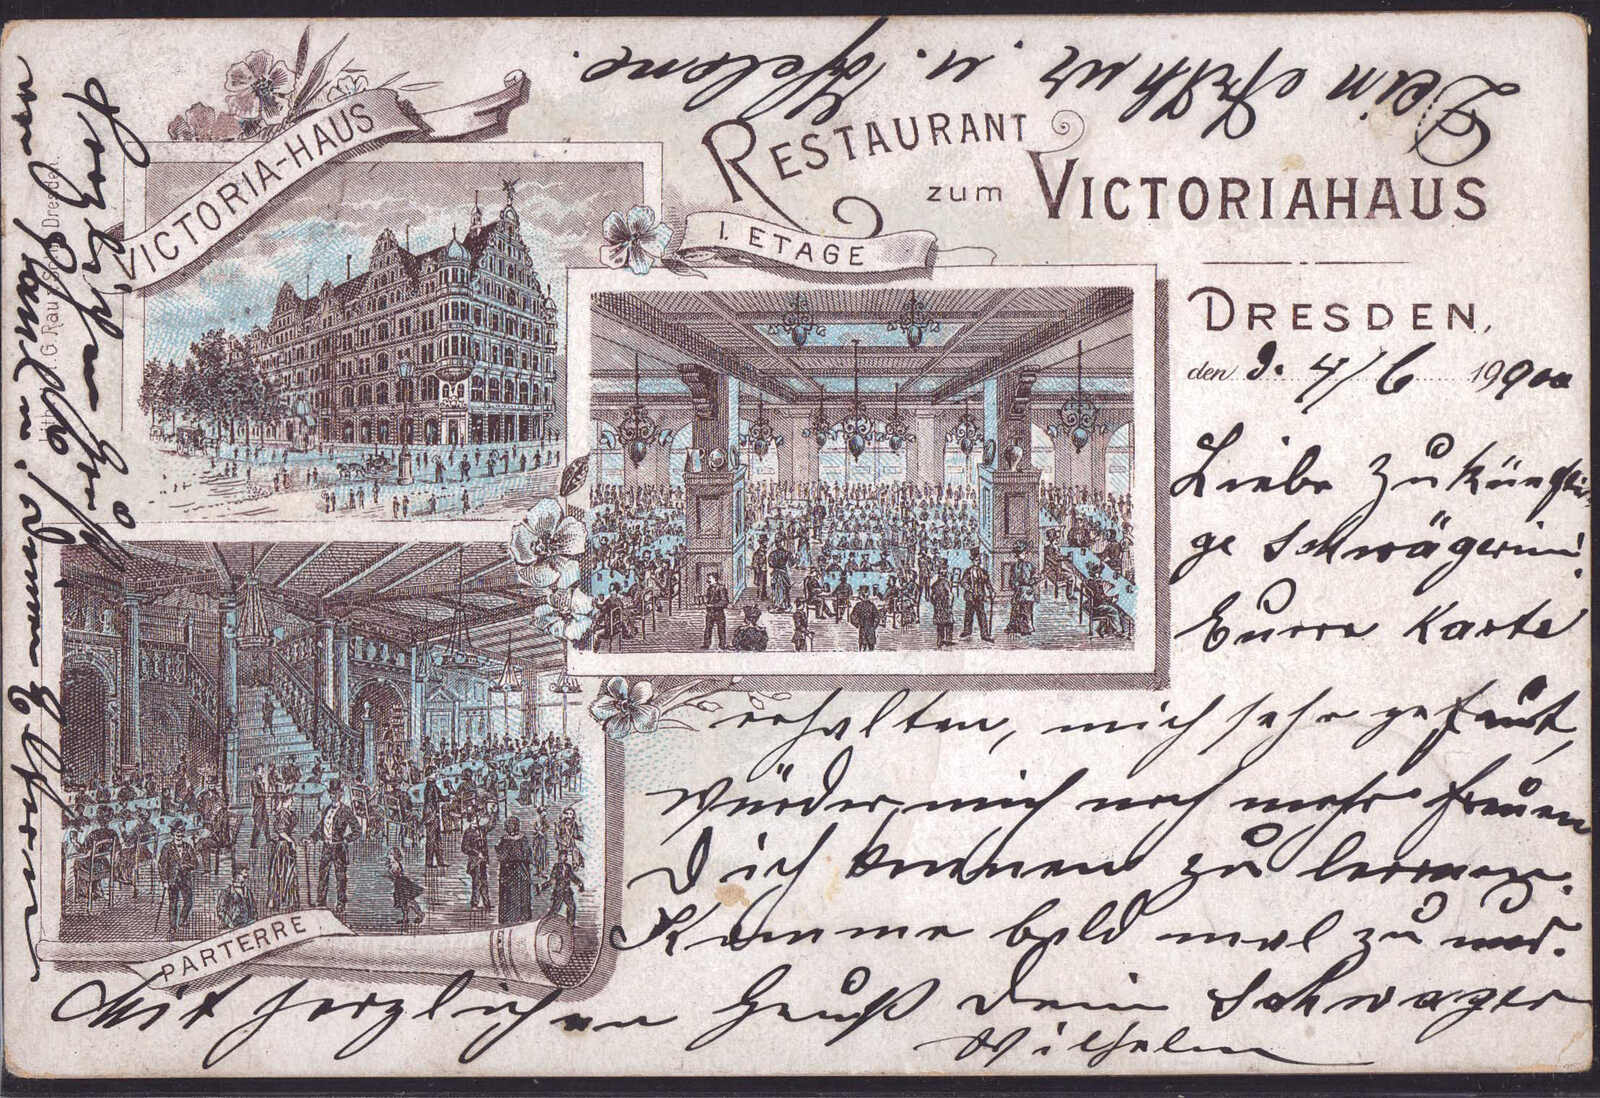 VICTORIA-HAUS
RESTAURANT
zum VICTORIAHAUS
I. ETAGE
DRESDEN,
den 4/6 1900
Liebe zukünfti
ge Schwägerin!
Eurre Karte
erhalten, mich sehr gefreut,
würde mich noch mehr freuen
Dich kennen zu lernen.
Komme bald mal zu uns.
Mit herzlichen Gruß Dein Schwager
Wilhelm
PARTERRE
Herzlichen Gruß
von
Dein Arthur u. Helene.
Lith. G. Rau Dresden.